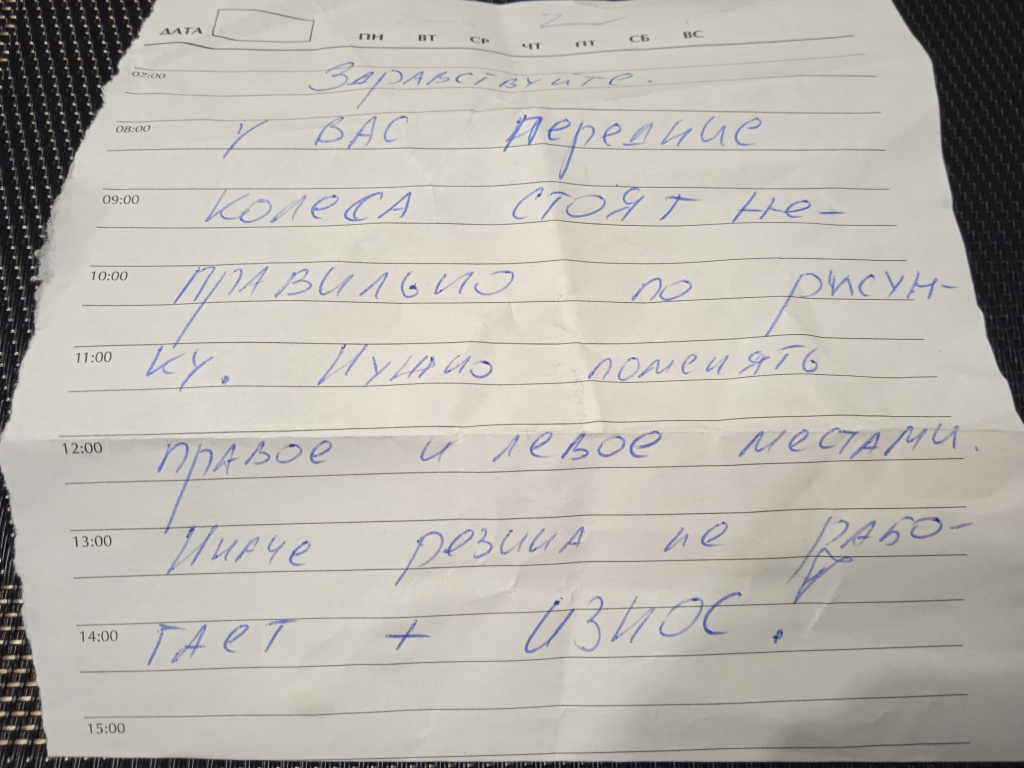 ДАТА ПН ВТ СР ЧТ ПТ СБ ВС
07:00 Здравствуйте.
08:00 У ВАС передние
09:00 колесА стоят не-
10:00 прАвильно по рисун-
11:00 ку. Нужно поменять
12:00 прАвое и левое местАми.
13:00 ИнАче резинА не рАбо-
14:00 тАет + износ.
15:00